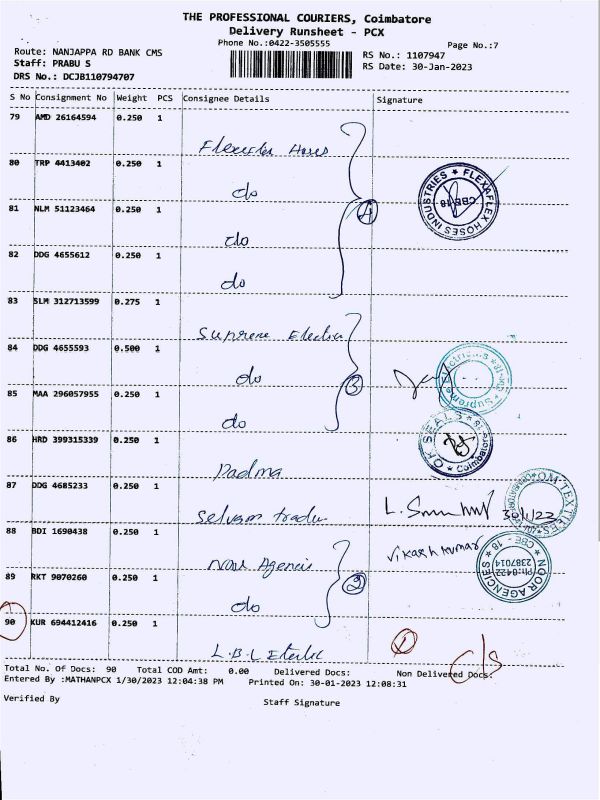 THE PROFESSIONAL COURIERS, Coimbatore
Delivery Runsheet - PCX
Phone No.:0422-3505555
Page No.:7
Route: NANJAPPA RD BANK CMS
Staff: PRABU S
DRS No.: DCJB110794707
RS No.: 1107947
RS Date: 30-Jan-2023
S No Consignment No Weight PCS Consignee Details Signature
79 AMD 26164594 0.250 1
Hoses
80 TRP 4413402 0.250 1
do
FLEXAFLEX HOSES INDUSTRIES ★ CBE-18
81 NLM 51123464 0.250 1
4
do
82 DDG 4655612 0.250 1
do
83 SLM 312713599 0.275 1
Supreme
84 DDG 4655593 0.500 1
do
3
85 MAA 296057955 0.250 1
do
86 HRD 399315339 0.250 1
OK SEALS ★ Coimbatore
Padma
87 DDG 4685233 0.250 1
Selvam
OM-TEXTILES
30/1/23
88 BDI 1690438 0.250 1
Noor Agencis
Vikash kumar
NOOR AGENCIES ★ CBE - 18
Ph:0422
2387014
89 RKT 9070260 0.250 1
2
do
90 KUR 694412416 0.250 1
1
L.B.L
c/s
Total No. Of Docs: 90 Total COD Amt: 0.00 Delivered Docs: Non Delivered Docs:
Entered By :MATHANPCX 1/30/2023 12:04:38 PM Printed On: 30-01-2023 12:08:31
Verified By
Staff Signature